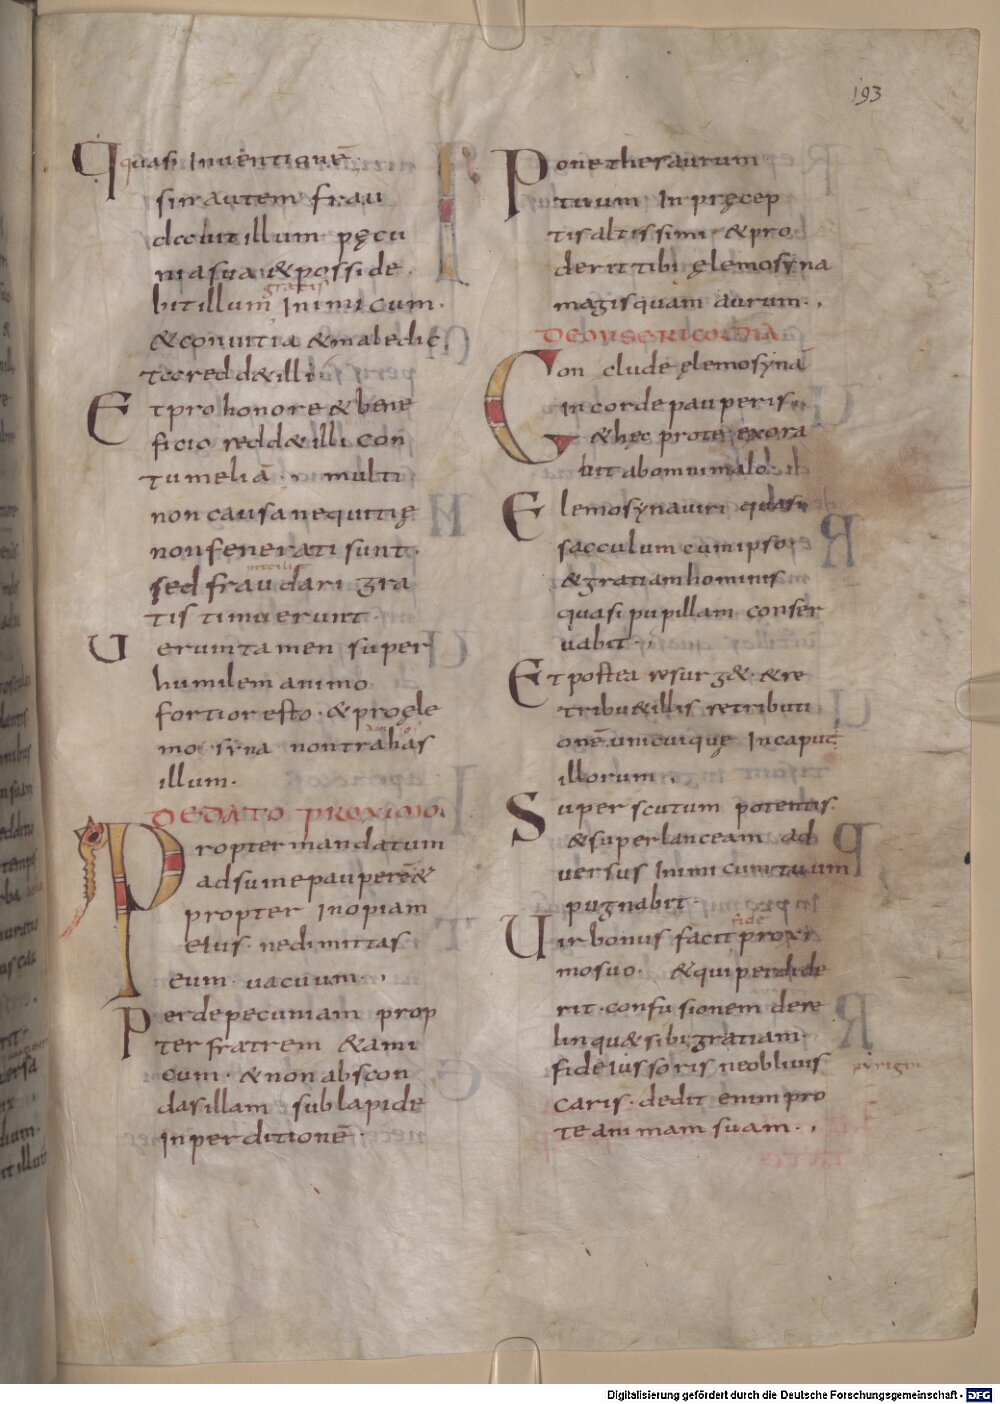 193
quasi inventionē.
sin autem frau
dabit illum pęcu
nia sua. & posside
bit illum gratis inimicum.
& convitia & maledic
ta reddet illi.
Et pro honore & bene
ficio redd& illi con
tumeliā. multi
non causa nequitię
non fenerati sunt.
sed fraudari gra
tis timuerunt.
Uerumtamen super
humilem animo
fortior esto. & pro ęle
mosyna non trahas
illum.
DE DATO PROXIMO.
Propter mandatum
adsume pauperē &
propter inopiam
eius. ne dimittas
eum. vacuum.,
Perde pecuniam prop
ter fratrem & ami
cum. & non abscon
das illam sub lapide
in perditionē.
Pone thesaurum
tuum in pręcep
tis altissimi. & pro
derit tibi ęlemosyna
magis quam aurum.,
DE MISERICORDIA
Con clude ęlemosynā
in corde pauperis.
& hęc pro te exora
bit ab omni malo.
Elemosyna viri quasi
sacculum cum ipso.
& gratiam hominis
quasi pupillam conser
vabit.,
Et postea resurg&. & re
tribu& illis retributi
onē unicuique in caput
illorum.
Super scutum potentis.
& super lanceam ad
versus inimicum tuum
pugnabit.
Uir bonus fidē facit proxi
mo suo. & qui perdide
rit. confusionem dere
linqu& sibi gratiam.
fideiussoris ne oblivis
caris. dedit enim pro
te animam suam.,
Digitalisierung gefördert durch die Deutsche Forschungsgemeinschaft - DFG